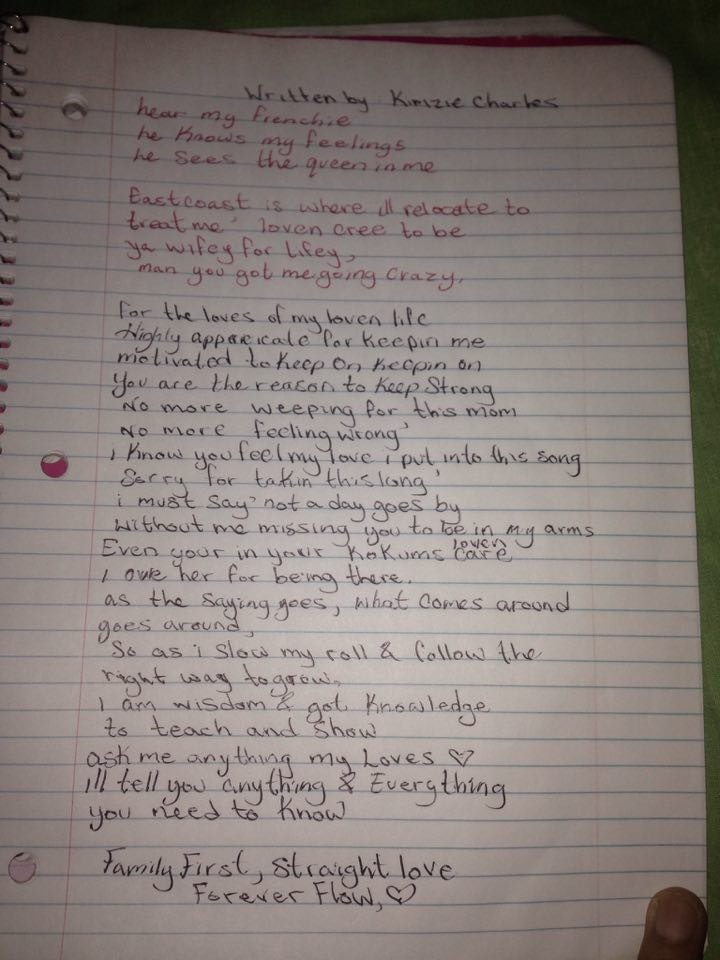 Written by Kirizie Charles
hear my frenchie
he knows my feelings
he sees the queen in me
Eastcoast is where ill relocate to
treat me' loven cree to be
ya wifey for lifey,
man you got me going crazy.
For the loves of my loven life
Highly apparicate for keepin me
motivated to keep on keepin on
You are the reason to keep strong
No more weeping for this mom
No more feeling wrong'
i know you feel my love i put into this song
Sorry for takin this long'
i must say' not a day goes by
without me missing you to be in my arms
Even your in your Kokums loven care
i owe her for being there.
as the saying goes, what comes around
goes around,
So as i slow my roll & follow the
right way to grow,
i am wisdom & got knowledge
to teach and show
ask me anything my Loves ♡
ill tell you anything & Everything
you need to know
Family First, Straight love
Forever Flow, ♡